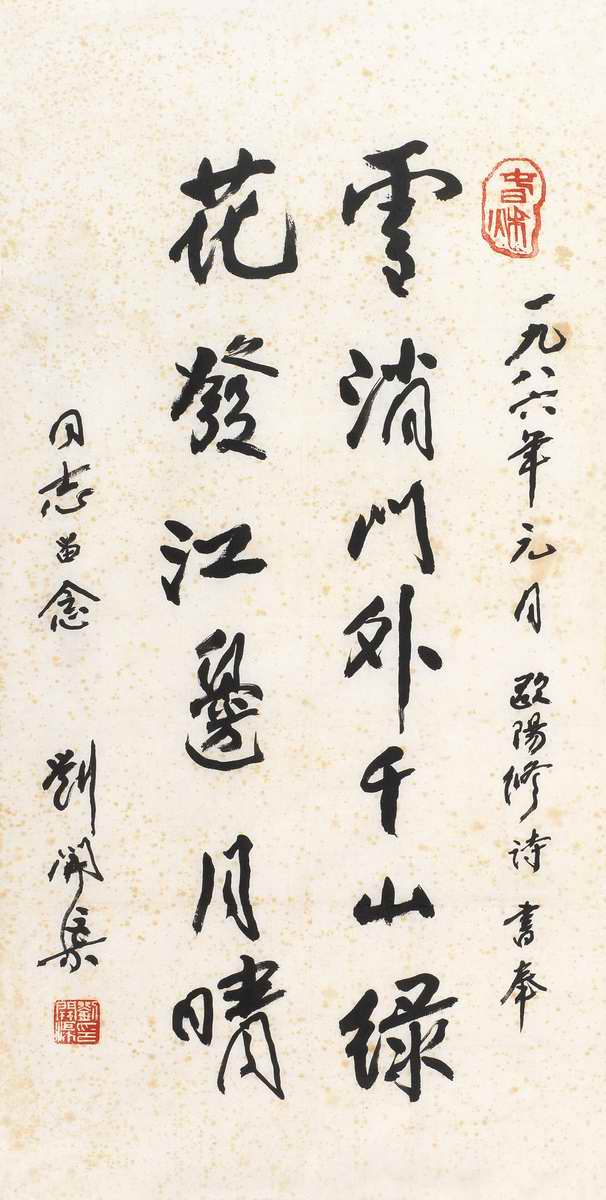 一九八六年元月 歐陽修詩 書奉
雪消門外千山綠
花發江邊月晴
同志留念
劉開渠
劉印開渠